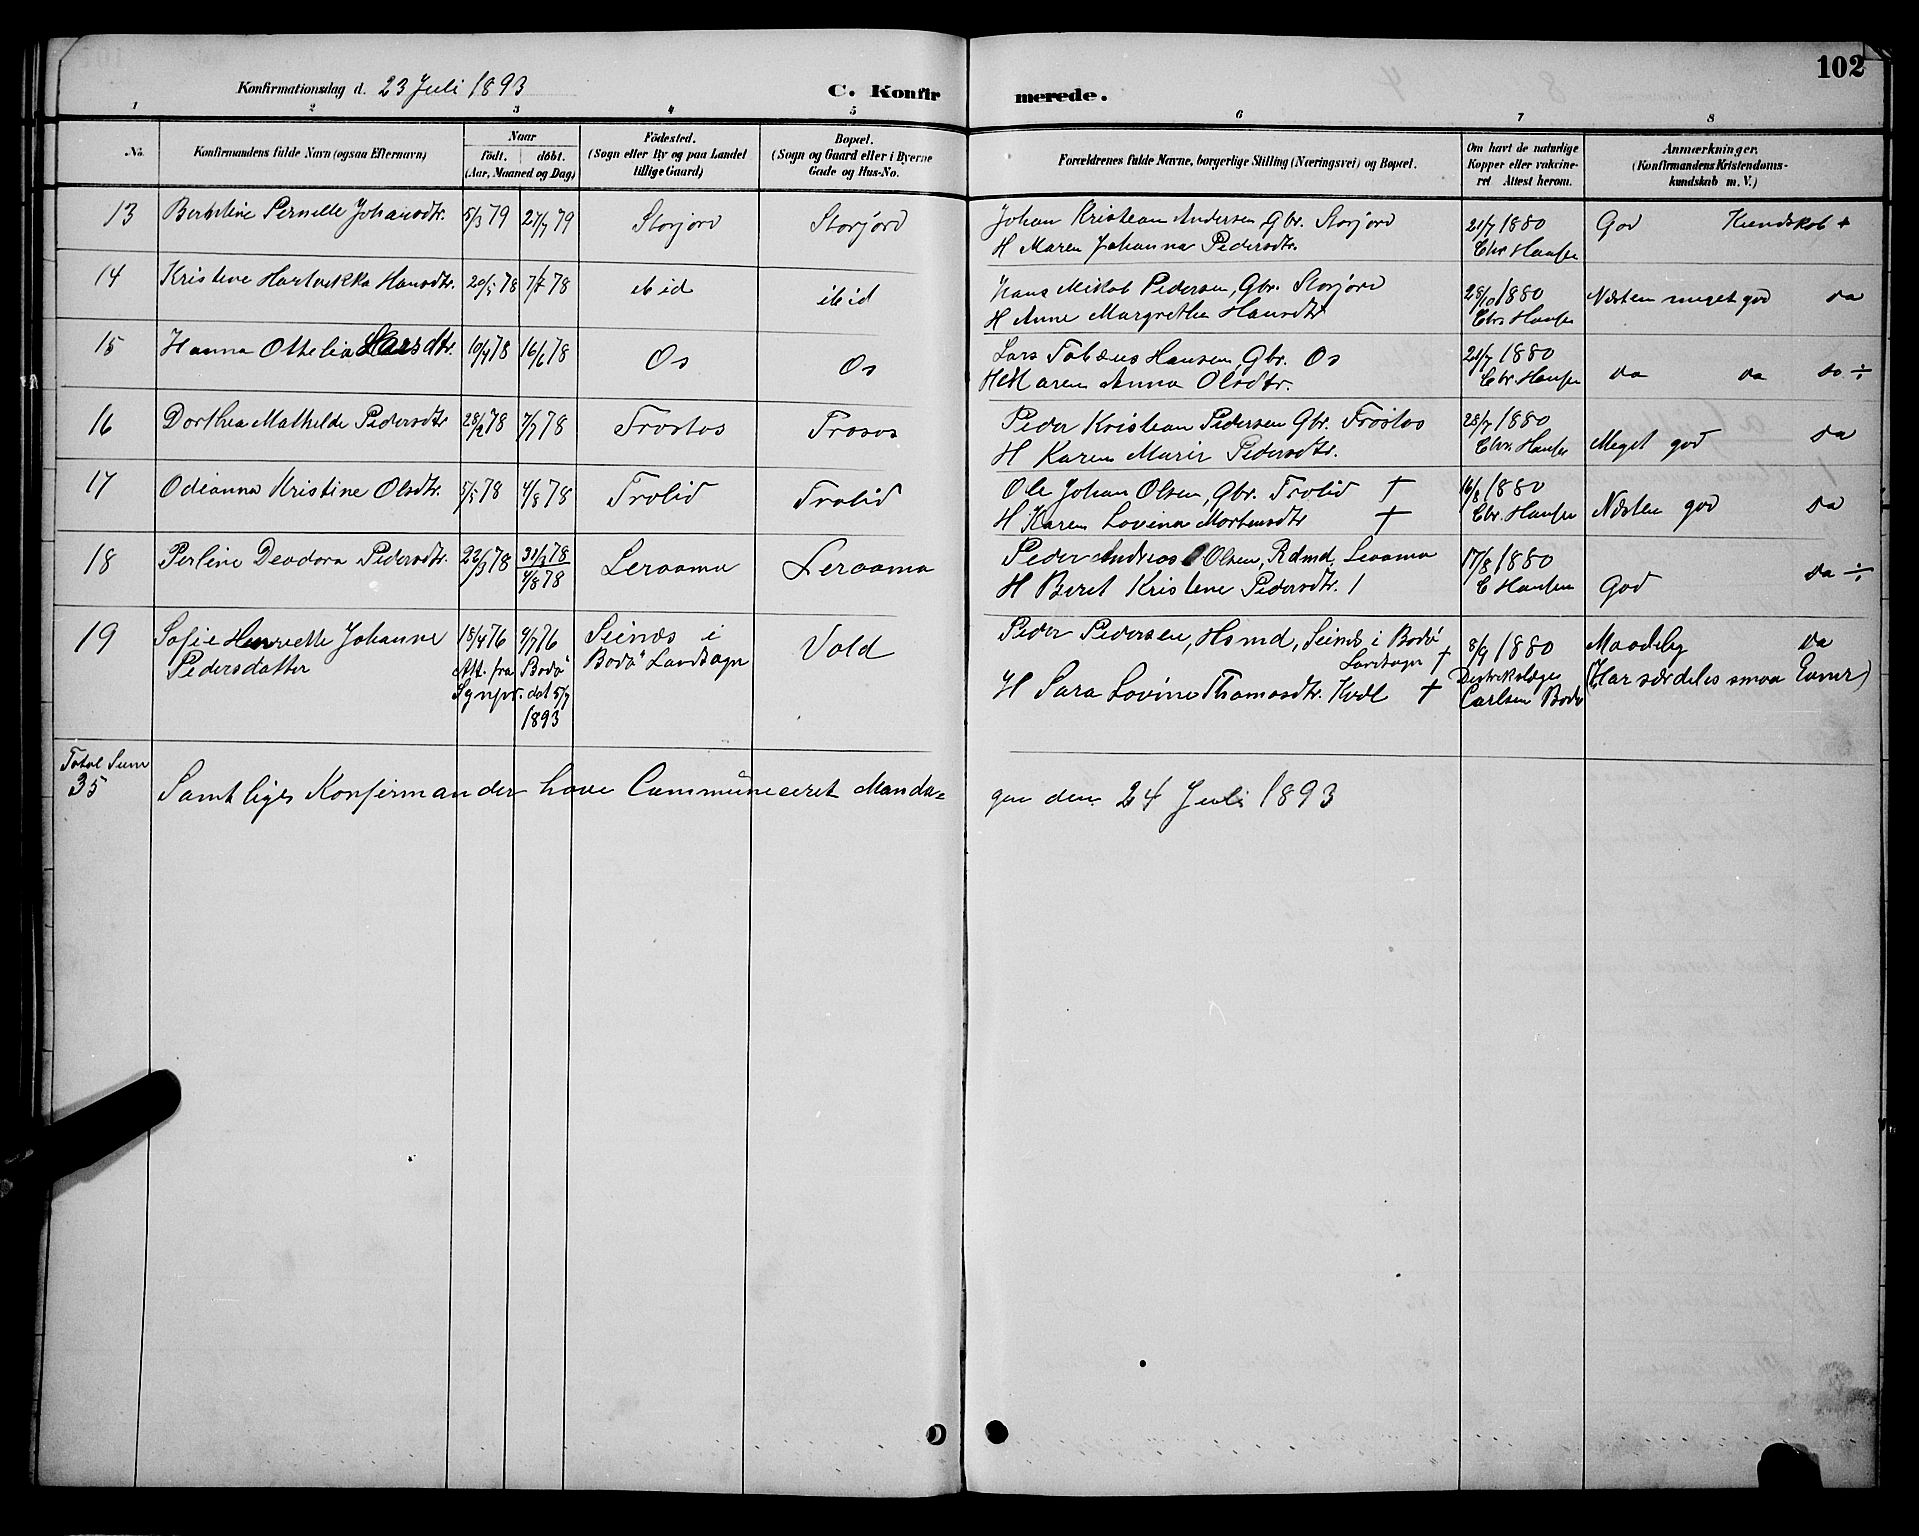 102
Konfirmationsdag d. 23 Juli 1893
C. Konfirmerede.
1 2 3 4 5 6 7 8
No. Konfirmandens fulde Navn (ogsaa Efternavn) Naar födt. döbt. (Aar, Maaned og Dag) Födested. (Sogn eller By og paa Landet tillige Gaard) Bopæl. (Sogn og Gaard eller i Byerne Gade og Hus-No. Forældrenes fulde Navne, borgerlige Stilling (Næringsvei) og Bopæl. Om havt de naturlige Kopper eller vakcineret Attest herom. Anmærkninger. (Konfirmandens Kristendomskundskab m. V.)
13 Pernelle Johansdtr. 5/3 79 27/7 79 Storjord Storjord Johan Kristian Andersen, Gbr. Storjord 21/7 1880 God Kundskab +
H Maren Johanna Pedersdtr. Chr. Hansen
14 Kristine Hartvikka Hansdtr. 20/5 78 7/7 78 ibid ibid Hans Mikal Pedersen, Gbr. Storjord 28/10 1880 Næsten meget god da
H Anne Margrethe Hansdtr Chr. Hansen
15 Hanna Othelia Larsdtr. 10/4 78 16/6 78 Os Os Lars Tobæus Hansen, Gbr. Os 21/7 1880 da da da ÷
H Maren Anna Olsdtr. Chr. Hansen
16 Dorthea Mathilde Pedersdtr 28/2 78 7/7 78 Trostos Trosos Peder Kristian Pedersen Gbr. Trostos 28/7 1880 Meget god da
H Karen Marie Pedersdtr. Chr. Hansen
17 Odianna Kristine Olsdtr. 5/5 78 4/8 78 Trolid Trolid Ole Johan Olsen, Gbr. Trolid † 16/8 1880 Næsten god da
H Karen Lovina Mortensdtr † Chr. Hansen
18 Perline Deodora Pedersdtr. 22/3 78 31/3 78 4/8 78 Leraama Leraama Peder Andreas Olsen, Rdmd, Leraama 17/8 1880 God da ÷
H Beret Kristine Pedersdtr. C Hansen
19 Sofie Henriette Johanne Pedersdatter 18/4 76 9/7 76 Att. fra Bodö Sgnpr. dat 5/7 1893 Seines i Bodö Landsogn Vold Peder Pedersen, Hsmd, Seines i Bodö Landsogn † 8/9 1880 Maadelig da
H Sara Lovine Thomasdtr. Kval † Distriktslæge Carlsen Bodö (Har særdeles smaa Evner)
Total Sum 35 Samtlige Konfirmander have Communiceret Mandagen den 24 Juli 1893